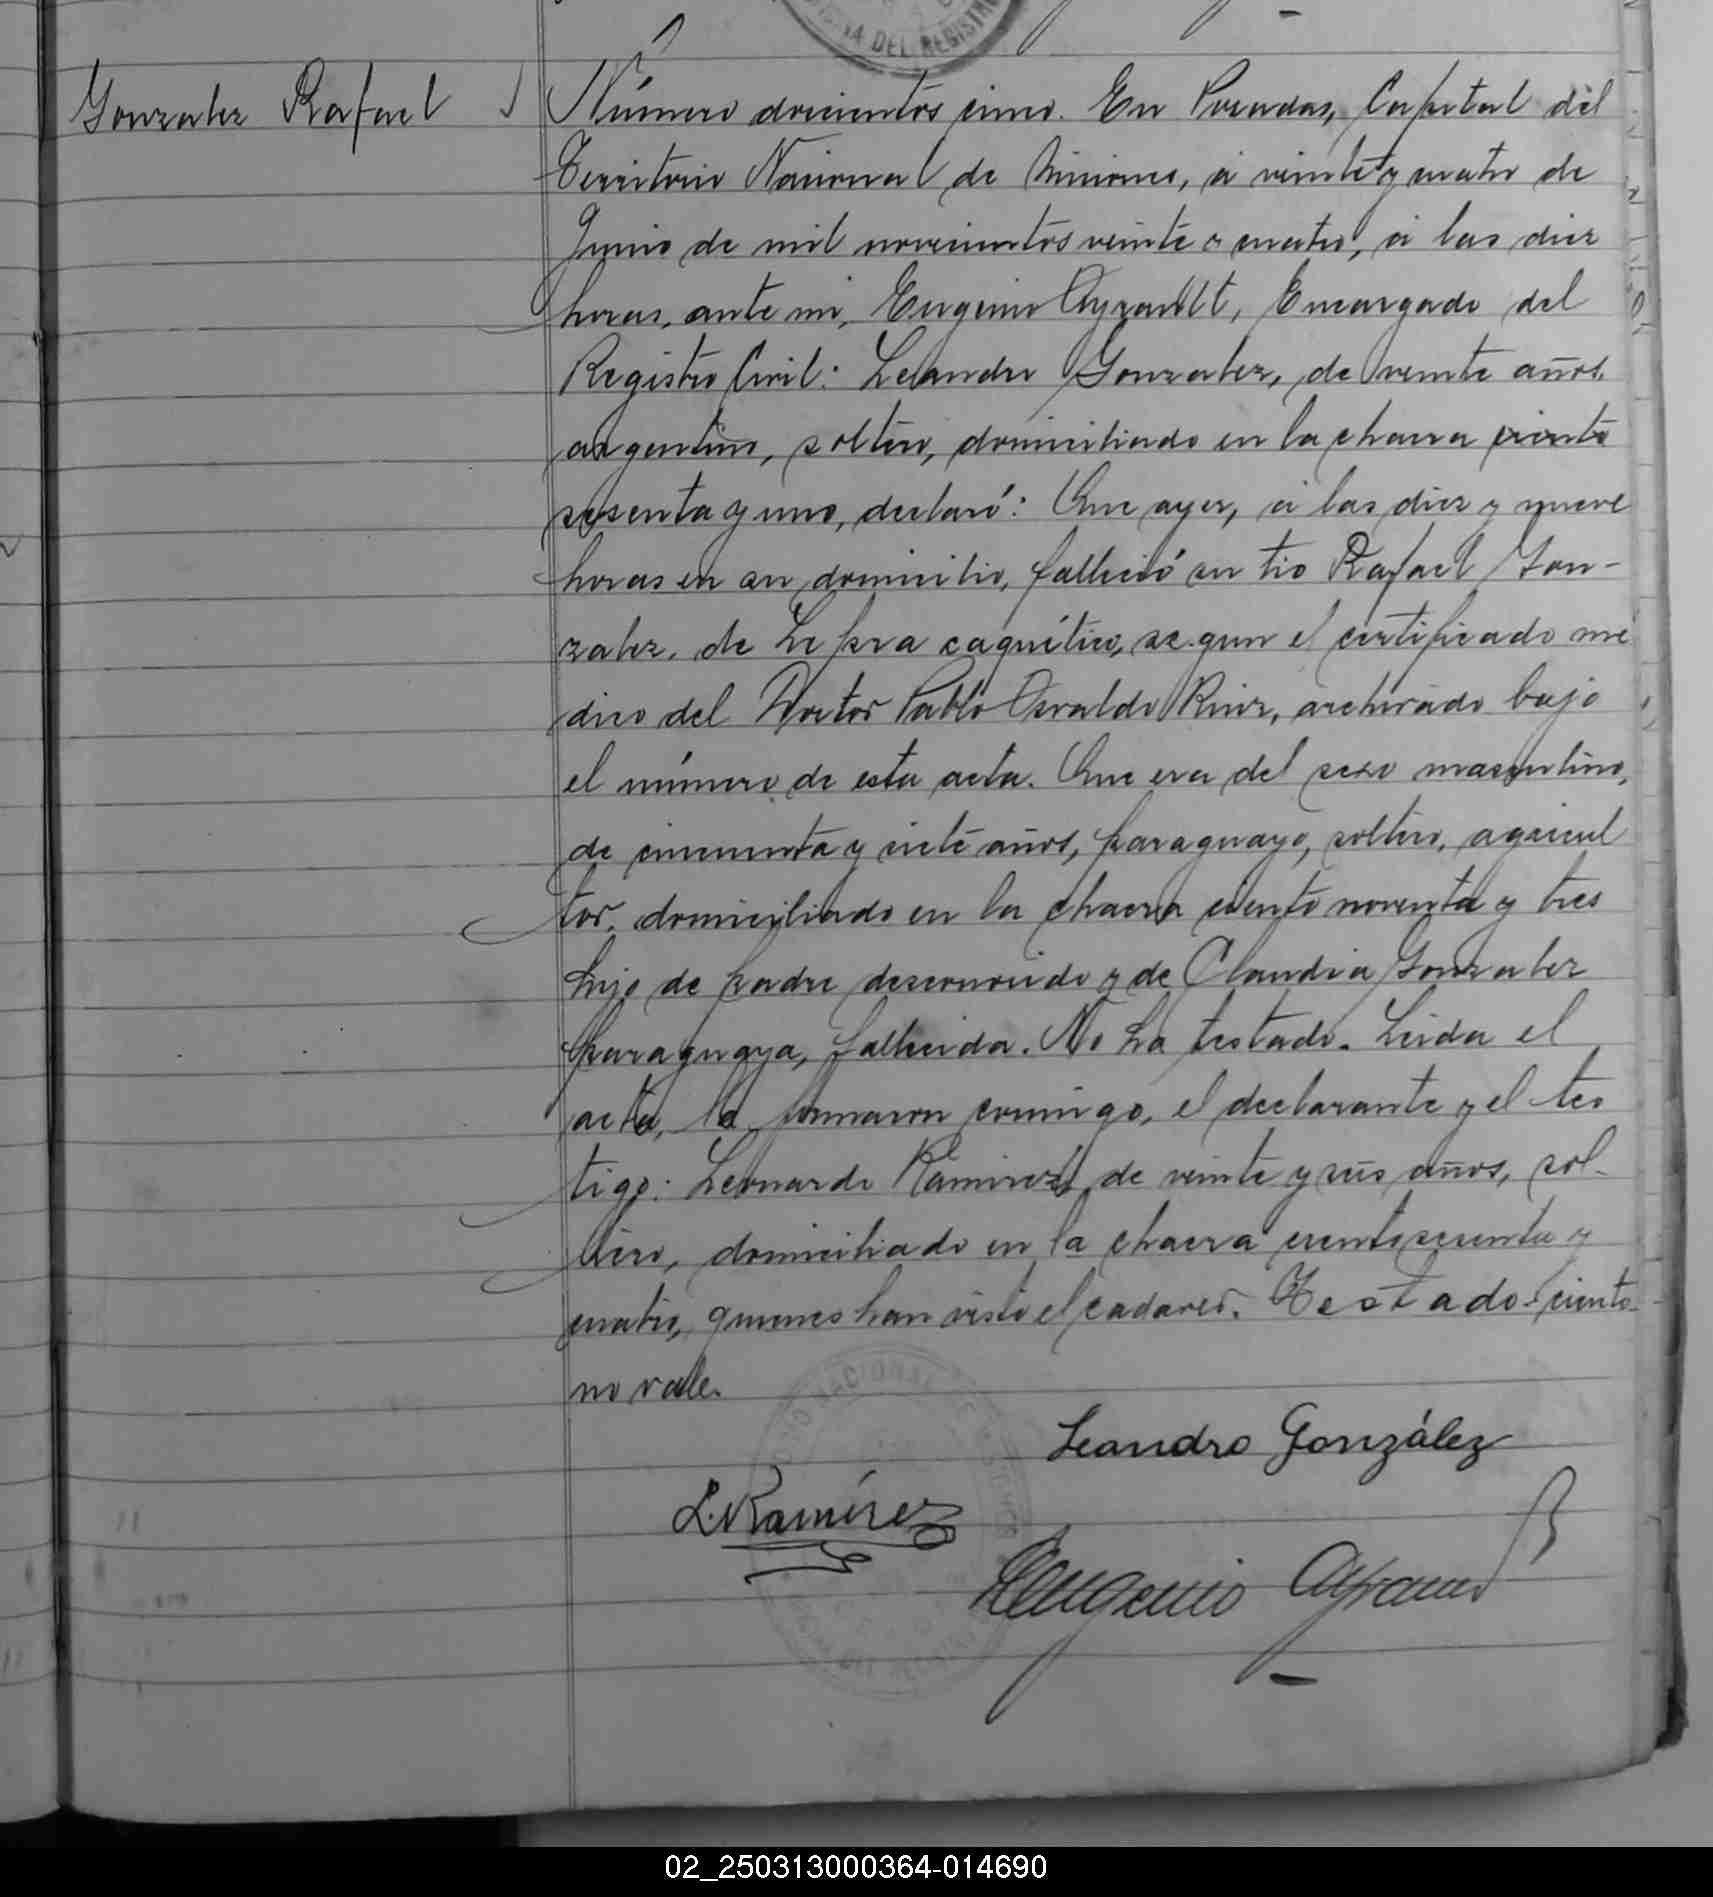 DEL REGISTR
Gonzalez Rafael
Número docientos cinco. En Posadas, Capital del
Territorio Nacional de Misiones, á veinte y cuatro de
Junio de mil novecientos veinte y cuatro, á las diez
horas, ante mi, Eugenio Ayrault, Encargado del
Registro Civil: Leandro Gonzalez, de veinte años,
argentino, soltero, domiciliado en la chacra ciento
sesenta y uno, declaró: Que ayer, á las diez y nueve
horas en su domicilio, falleció su tio Rafael Gon-
zalez, de Lepra caquético, segun el certificado mé
dico del Doctor Pablo Osvaldo Ruiz, archivado bajo
el número de esta acta. Que era del sexo masculino,
de cincuenta y siete años, paraguayo, soltero, agricul
tor, domiciliado en la chacra ciento noventa y tres
hijo de padre desconocido y de Claudia Gonzalez
paraguaya, fallecida. No ha testado. Leida el
acta, la firmaron conmigo, el declarante y el tes
tigo: Leonardo Ramirez, de veinte y seis años, sol-
tero, domiciliado en la chacra ciento sesenta y
cuatro, quienes han visto el cadaver. Testado-ciento-
no vale.
Leandro González
L. Ramírez
Eugenio Ayrault
02_250313000364-014690